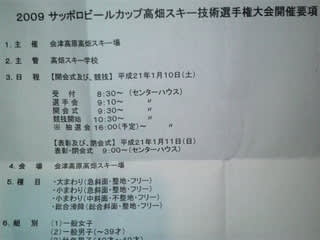 2009 サッポロビールカップ高畑スキー技術選手権大会開催要項
1. 主 催 会津高原高畑スキー場
2. 主 管 高畑スキー学校
3. 日 程 【開会式及び、競技】 平成21年1月10日(土)
受 付 8:30～ (センターハウス)
選手会 9:10～ 〃
開会式 9:30～ 〃
競技開始 10:30～ 〃
※ 抽選会 16:00(予定)～ 〃
【表彰及び、閉会式】 平成21年1月11日(日)
表彰・閉会式 9:00～ (センターハウス)
4. 会 場 会津高原高畑スキー場
5. 種 目 ・大まわり(急斜面・整地・フリー)
・小まわり(急斜面・整地・フリー)
・小まわり(中斜面・不整地・フリー)
・総合滑降(総合斜面・整地・フリー)
6. 組 別 (1)一般女子
(2)一般男子(～39才)